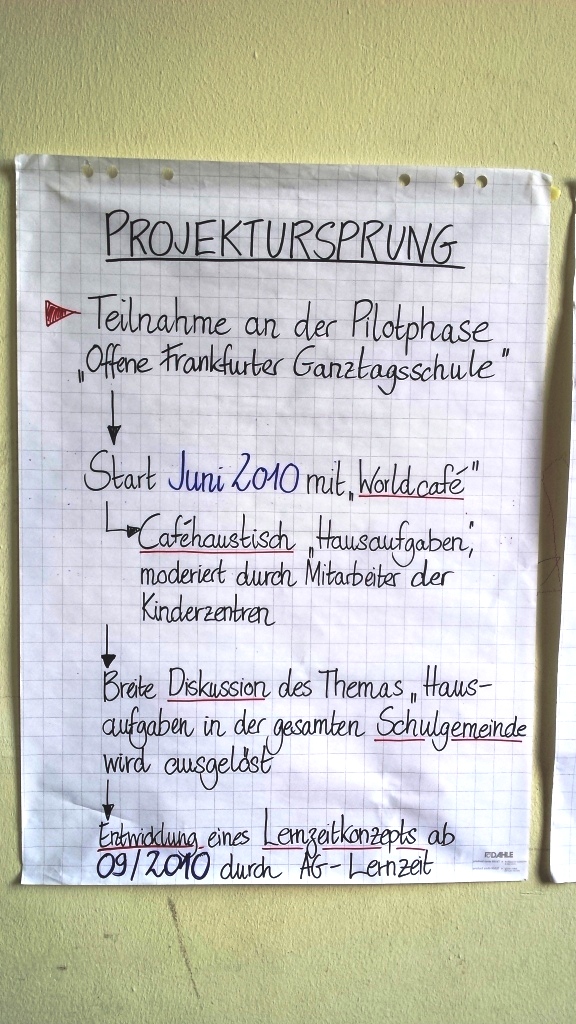 PROJEKTURSPRUNG
Teilnahme an der Pilotphase
„Offene Frankfurter Ganztagsschule"
Start Juni 2010 mit „Worldcafé"
Caféhaustisch „Hausaufgaben",
moderiert durch Mitarbeiter der
Kinderzentren
Breite Diskussion des Themas „Haus-
aufgaben in der gesamten Schulgemeinde
wird ausgelöst
Entwicklung eines Lernzeitkonzepts ab
09/2010 durch AG-Lernzeit
DAHLE